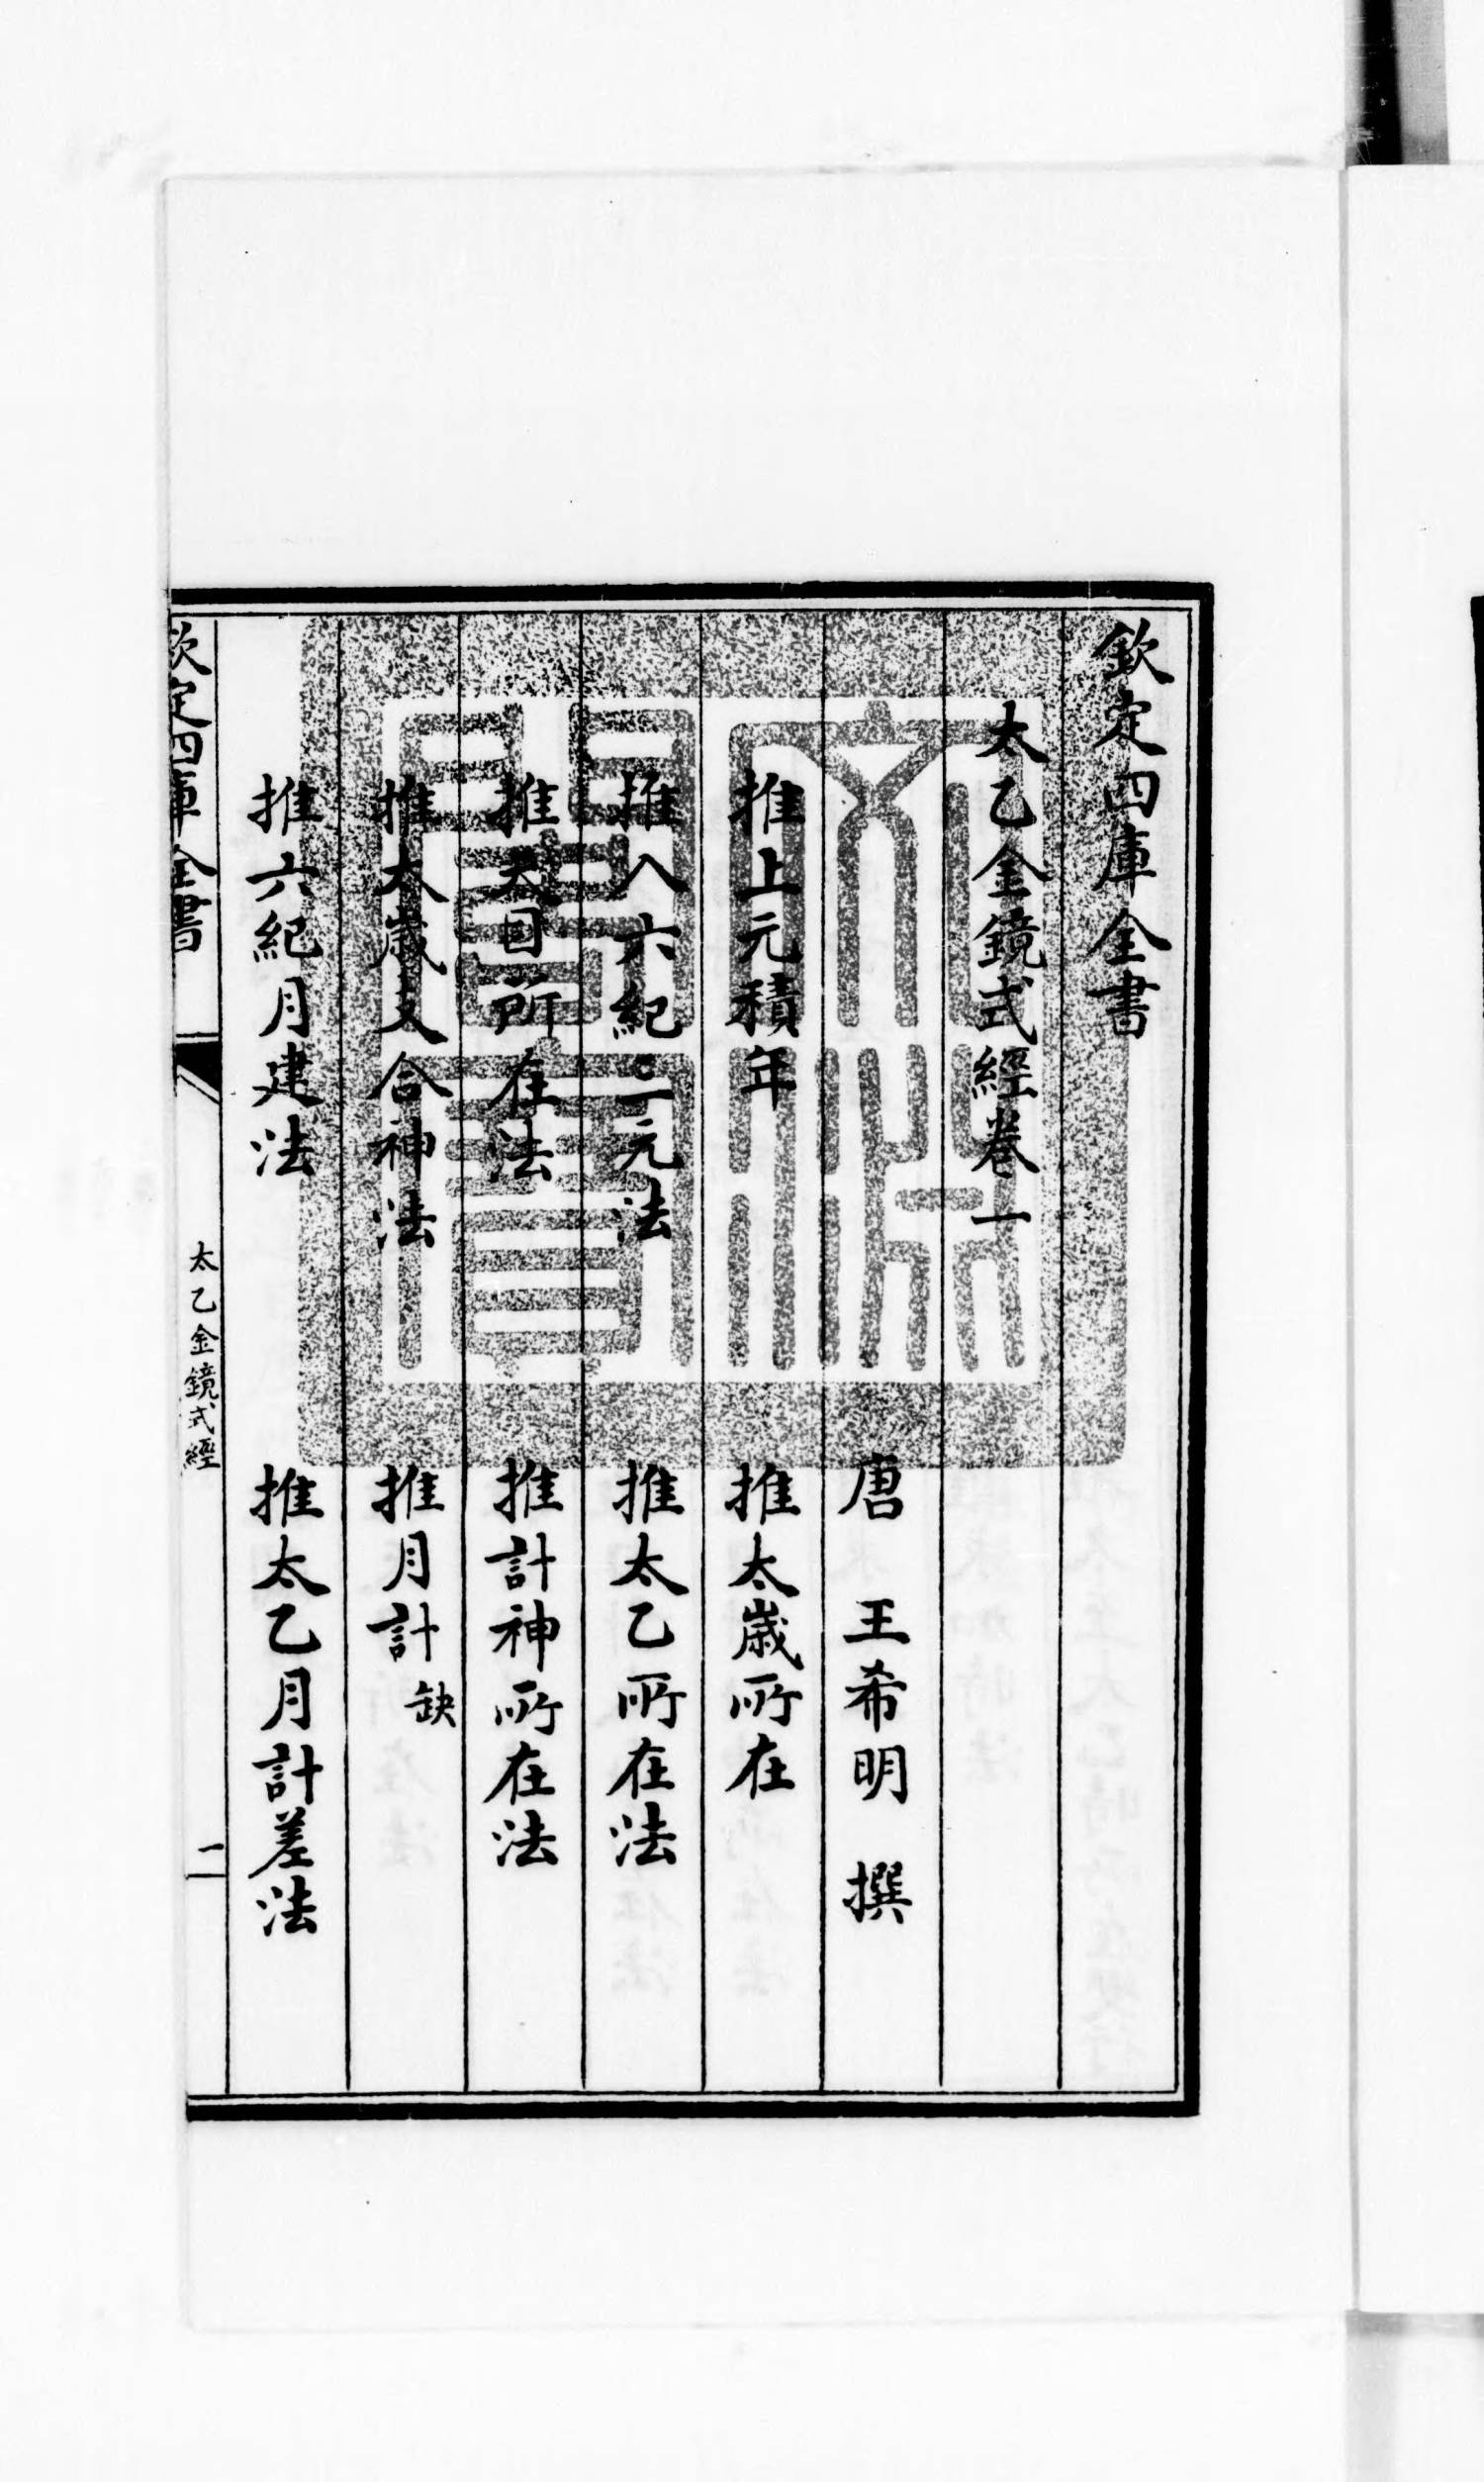 欽定四庫全書
太乙金鏡式經卷一
唐 王希明 撰
推上元積年 推太歲所在
推入六紀三元法 推太乙所在法
推天目所在法 推計神所在法
推太歲支合神法 推月計缺
推六紀月建法 推太乙月計差法
欽定四庫全書 太乙金鏡式經
文淵閣寶